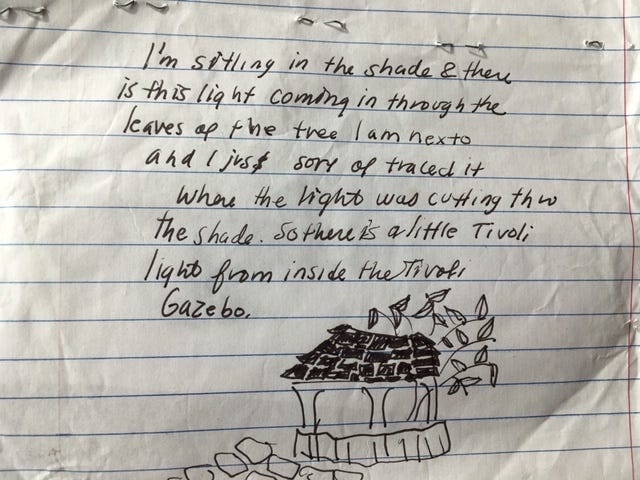 I'm sitling in the shade & there
is this light coming in through the
leaves of the tree I am nexto
and I just sort of traced it
where the light was cutting thru
the shade. So there is a little Tivoli
light from inside the Tivoli
Gazebo.